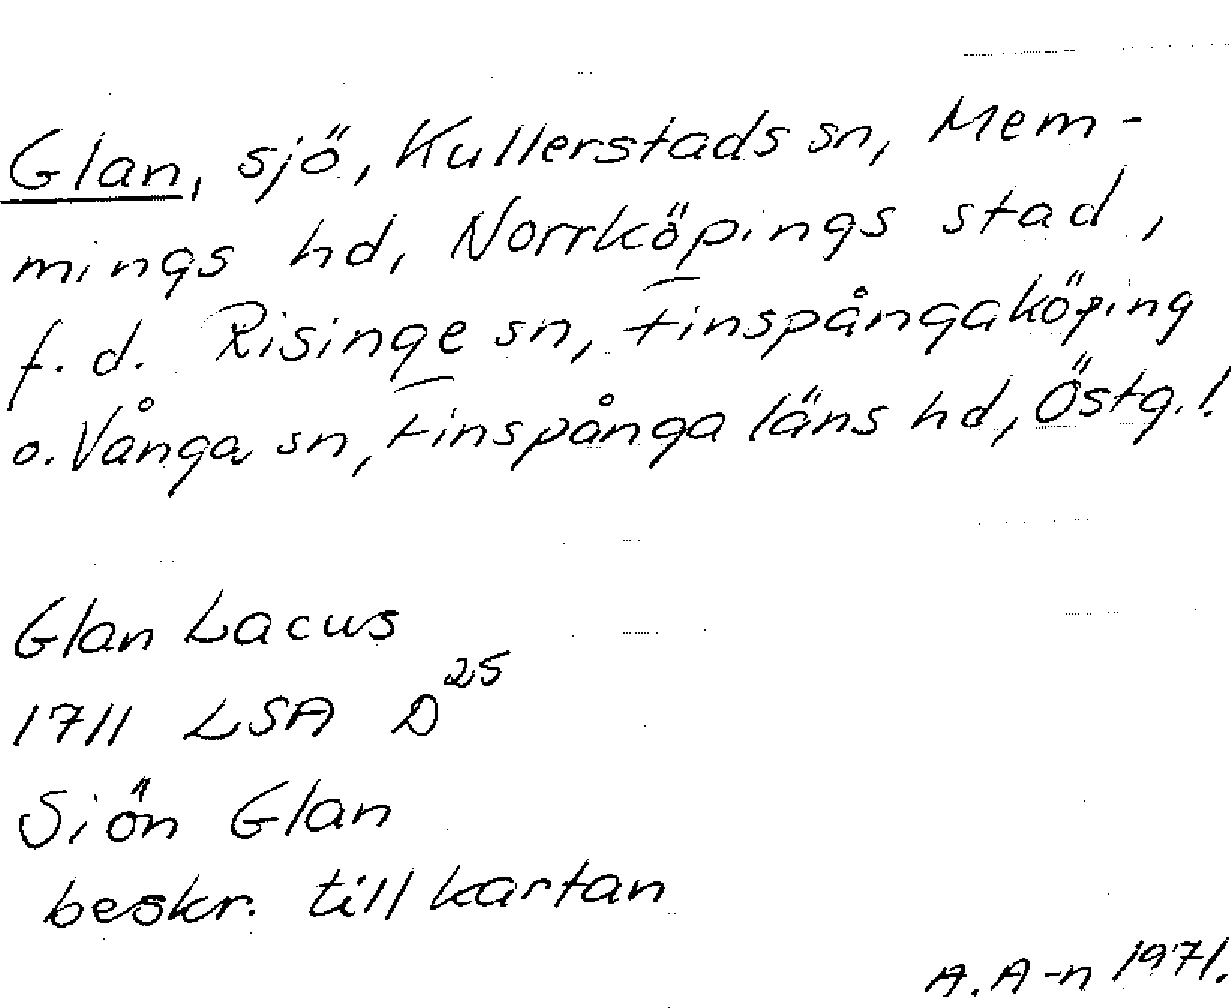 Glan, sjö, Kullerstads sn, Mem-
mings hd, Norrköpings stad,
f.d. Risinge sn, Finspångaköping
o. Vånga sn, Finspånga läns hd, Östg.!
Glan Lacus
1711 LSA D25
Siön Glan
beskr. till kartan
A.A-n 1971.